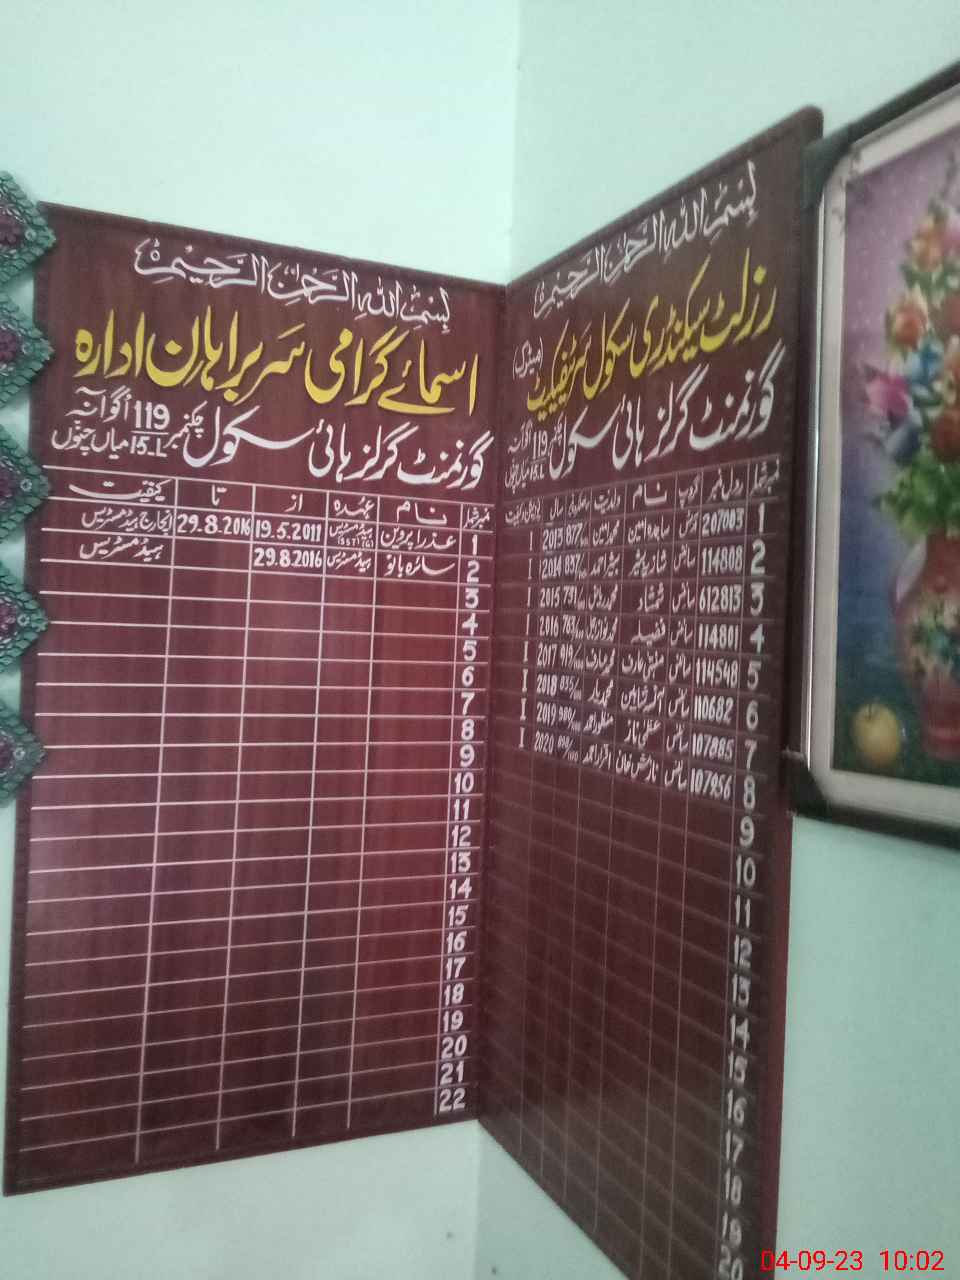 بسم اللہ الرحمن الرحیم
اسمائے گرامی سربراہان ادارہ
گورنمنٹ گرلز ہائی سکول چک نمبر 119 15-L میاں چنوں
نمبر شمار نام عہدہ از تا کیفیت
1 عذرا پروین ہیڈ مسٹریس 19.5.2011 29.8.2016 انچارج ہیڈ مسٹریس
2 سائرہ بانو ہیڈ مسٹریس 29.8.2016 ہیڈ مسٹریس
3
4
5
6
7
8
9
10
11
12
13
14
15
16
17
18
19
20
21
22
بسم اللہ الرحمن الرحیم
رزلٹ سیکنڈری سکول سرٹیفکیٹ (میٹرک)
گورنمنٹ گرلز ہائی سکول 119 15-L میاں چنوں
نمبر شمار رول نمبر گروپ نام ولدیت سال
1 207003 ساجدہ امین محمد امین 2013 877 I
2 114808 سائنس شازیہ بشیر بشیر احمد 2014 I
3 612813 سائنس شمشاد محمد ریاض 2015 791 I
4 114801 سائنس فضیلہ 2016 763 I
5 114548 سائنس عارف محمد عارف 2017 919 I
6 110682 سائنس آمنہ شاہین محمد یار 2018 I
7 107885 سائنس عظمیٰ ناز منظور احمد 2019 I
8 107956 سائنس نازش خان 2020 I
9
10
11
12
13
14
15
16
17
18
19
20
04-09-23 10:02